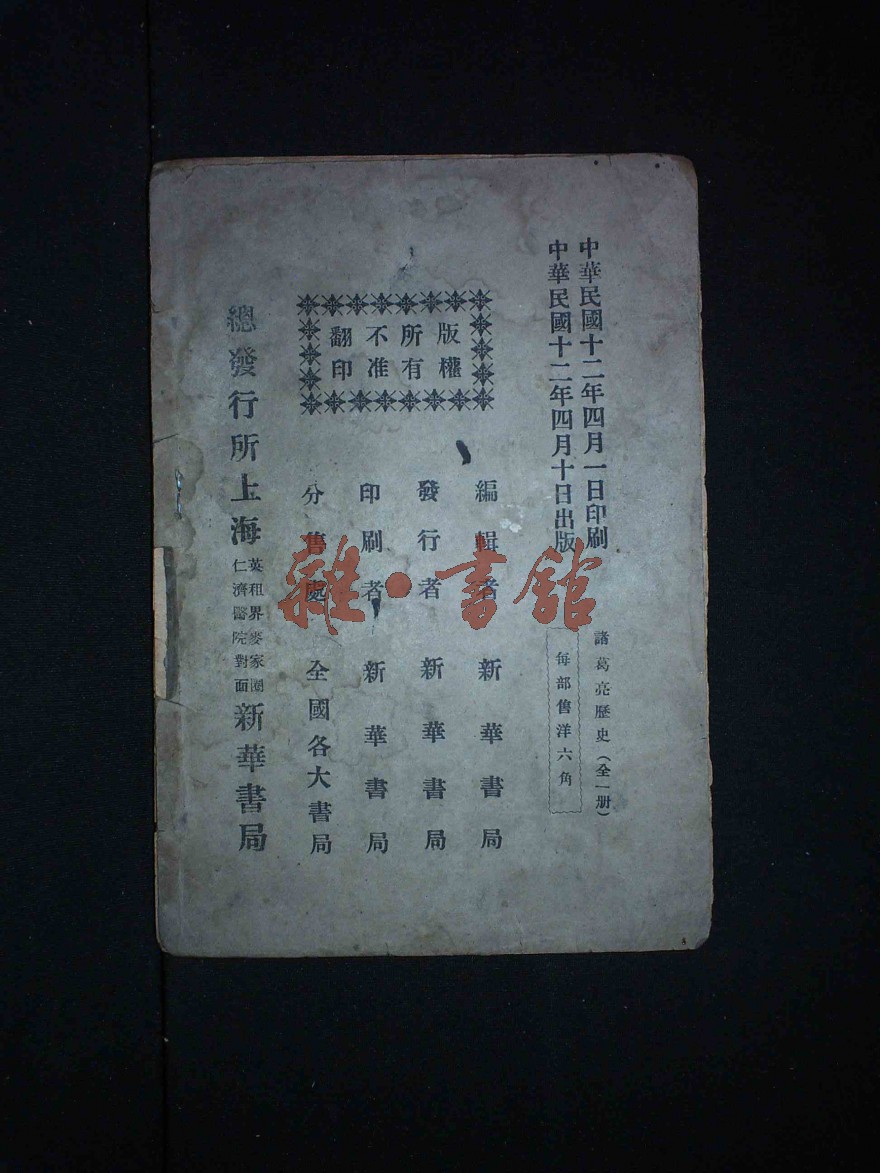 中華民國十二年四月一日印刷
中華民國十二年四月十日出版
諸葛亮歷史（全一册）
每部售洋六角
版權
所有
不准
翻印
編輯者 新華書局
發行者 新華書局
印刷者 新華書局
分售處 全國各大書局
總發行所上海英租界麥家圈仁濟醫院對面新華書局
雜·書館